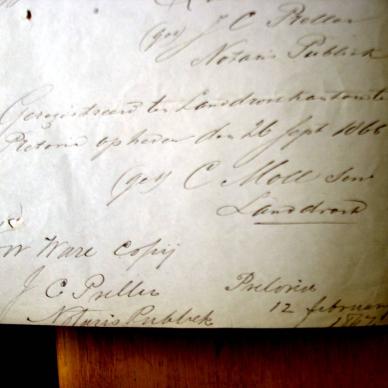 (get) J C Preller
Notaris Publiek
Geregistreerd ten Landdrostkantoore
Pretoria op heden den 26 Sept 1866
(get) C Moll Senr
Landdrost
Ware Copij
J C Preller
Notaris Publiek
Pretoria
12 februarij